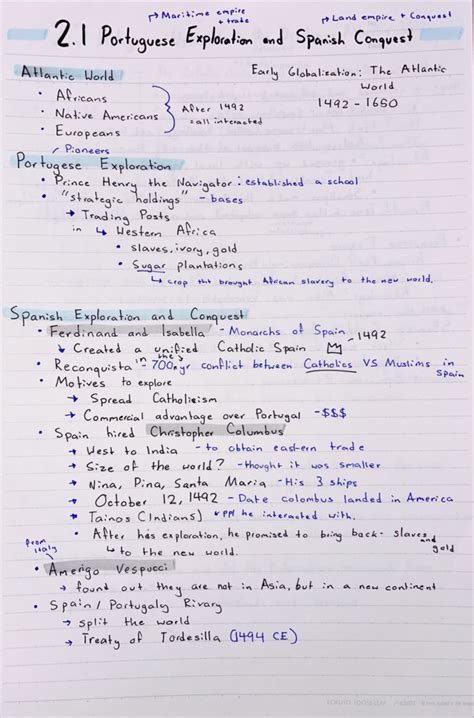 → Maritime empire
+ trade
→ Land empire + Conquest
2.1 Portuguese Exploration and Spanish Conquest
Atlantic World
Early Globalisation: The Atlantic
World
1492 - 1650
• Africans
• Native Americans
• Europeans
After 1492
all interacted
Pioneers
Portugese Exploration
• Prince Henry the Navigator : established a school
• "strategic holdings" - bases
→ Trading Posts
in ↳ Western Africa
• slaves, ivory, gold
• Sugar plantations
↳ crop tht brought African slavery to the new world.
Spanish Exploration and Conquest
• Ferdinand and Isabella - Monarchs of Spain - 1492
↳ Created a unified Catholic Spain
• Reconquista in the 700 yr conflict between Catholics VS Muslims in Spain
• Motives to explore
→ Spread Catholicism
→ Commercial advantage over Portugal - $$$
• Spain hired Christopher Columbus
→ West to India - to obtain eastern trade
→ Size of the world? - thought it was smaller
→ Nina, Pina, Santa Maria - His 3 ships
→ October 12, 1492 - Date colombus landed in America
→ Tainos (Indians) ppl he interacted with.
• After his exploration, he promised to bring back - slaves and gold
↳ to the new world.
from Italy
• Amerigo Vespucci
→ found out they are not in Asia, but in a new continent
• Spain / Portugaly Rivary
→ split the world
→ Treaty of Tordesilla (1494 CE)